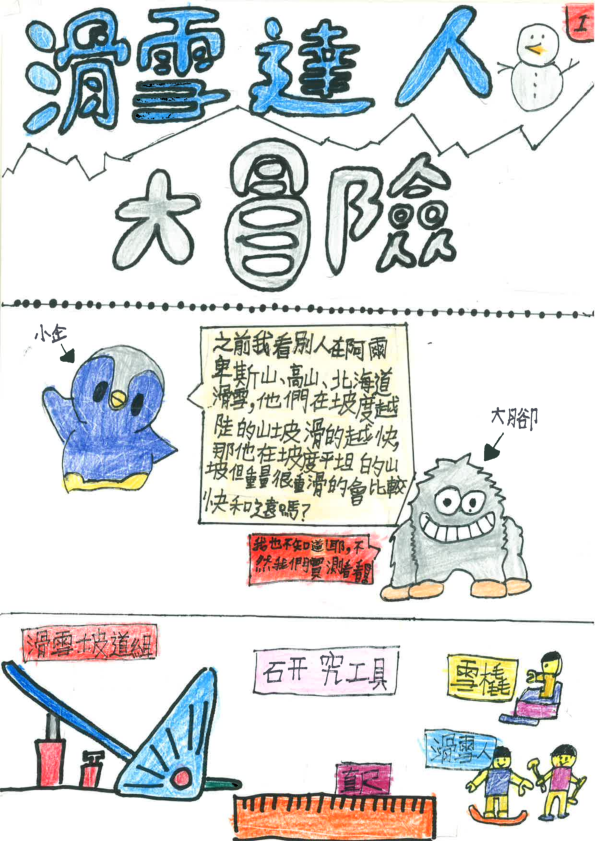 1
滑雪達人
大冒險
小企
之前我看別人在阿爾
卑斯山、高山、北海道
滑雪,他們在坡度越
陡的山坡滑的越快,
那他在坡度平坦的山
坡但重量很重滑的會比較
快和遠嗎?
大腳
我也不知道耶,不
然我們實測看看
滑雪坡道組
研究工具
雪橇
直尺
滑雪人